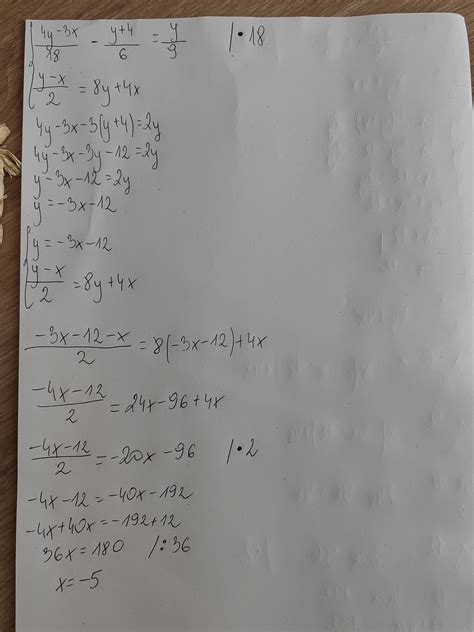 { (4y-3x)/18 - (y+4)/6 = y/9 /•18
{ (y-x)/2 = 8y+4x
4y-3x-3(y+4)=2y
4y-3x-3y-12=2y
y-3x-12=2y
y=-3x-12
{ y=-3x-12
{ (y-x)/2 = 8y+4x
(-3x-12-x)/2 = 8(-3x-12)+4x
(-4x-12)/2 = 24x-96+4x
(-4x-12)/2 = -20x-96 /•2
-4x-12=-40x-192
-4x+40x=-192+12
36x=180 /:36
x=-5